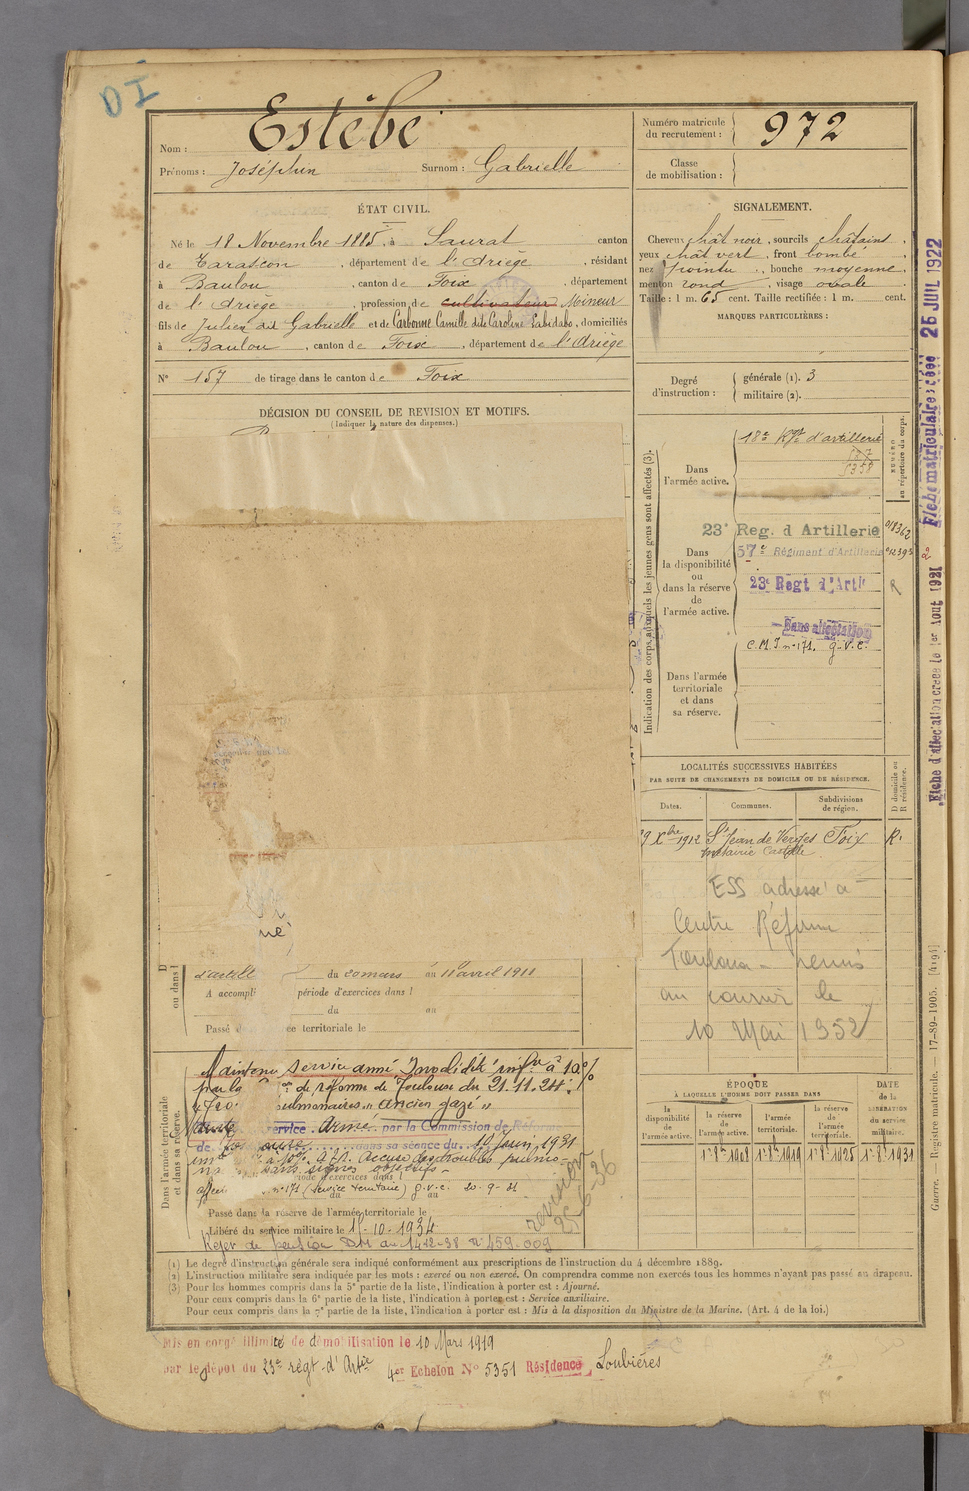 DI
Nom : Estèbe
Prénoms : Joséphin Surnom : Gabrielle
Numéro matricule du recrutement : 972
Classe de mobilisation :
ÉTAT CIVIL.
Né le 18 Novembre 1885, à Saurat canton
de Tarascon, département de l'Ariège, résidant
à Baulou, canton de Foix, département
de l'Ariège, profession de cultivateur Mineur
fils de Julien dit Gabrielle et de Carbonne Camille dite Caroline Labidabo, domiciliés
à Baulou, canton de Foix, département de l'Ariège
N° 157 de tirage dans le canton de Foix
SIGNALEMENT.
Cheveux chât noir, sourcils châtains,
yeux chât vert, front bombé,
nez pointu, bouche moyenne,
menton rond, visage ovale.
Taille : 1 m. 65 cent. Taille rectifiée : 1 m. cent.
MARQUES PARTICULIÈRES :
Degré d'instruction : générale (1). 3
militaire (2).
DÉCISION DU CONSEIL DE REVISION ET MOTIFS.
(Indiquer la nature des dispenses.)
Indication des corps auxquels les jeunes gens sont affectés (3).
NUMÉRO au répertoire du corps.
Dans l'armée active.
18e Rgt d'artillerie
Dans la disponibilité ou dans la réserve de l'armée active.
23e Reg. d Artillerie
57e Régiment d'Artillerie
23e Regt d'Art
Sans affectation
C.M.I n° 171. g.v.c.
Dans l'armée territoriale et dans sa réserve.
LOCALITÉS SUCCESSIVES HABITÉES
PAR SUITE DE CHANGEMENTS DE DOMICILE OU DE RÉSIDENCE.
D domicile ou R résidence.
Dates. Communes. Subdivisions de région.
9 Xbre 1912 St Jean de Verges Foix R.
métairie
ESS adressé à
Centre Réforme
Toulouse
au courrier le
10 Mai 1952
d'artill du 20 mars au 11 avril 1911
A accompli période d'exercices dans l
du au
Passé d ce territoriale le
Dans l'armée territoriale et dans sa réserve.
Maintenu service armé Invalidité infre à 10%
par la on de réforme de Toulouse du 21.11.24:
ulmonaires "ancien gazé"
ervice Armé par la Commission de Réforme
de dans sa séance du 19 Juin 1931
à 10%. Accuse des troubles pulmo-
sans signes objectifs
iode d'exercices dans l
n° 171 (service territoire) g.v.c. 20-9-31
du au
Passé dans la réserve de l'armée territoriale le
Libéré du service militaire le 15-10-1934
Rejet de pension DM du 14-12-38 N° 459.009
ÉPOQUE
À LAQUELLE L'HOMME DOIT PASSER DANS
DATE de la LIBÉRATION du service militaire.
la disponibilité de l'armée active.
la réserve de l'armée active.
l'armée territoriale.
la réserve de l'armée territoriale.
1er 8bre 1908 1er 8bre 1919 1er 8bre 1925 1er 8bre 1931
(1) Le degré d'instruction générale sera indiqué conformément aux prescriptions de l'instruction du 4 décembre 1889.
(2) L'instruction militaire sera indiquée par les mots : exercé ou non exercé. On comprendra comme non exercés tous les hommes n'ayant pas passé au drapeau.
(3) Pour les hommes compris dans la 5e partie de la liste, l'indication à porter est : Ajourné.
Pour ceux compris dans la 6e partie de la liste, l'indication à porter est : Service auxiliaire.
Pour ceux compris dans la 7e partie de la liste, l'indication à porter est : Mis à la disposition du Ministre de la Marine. (Art. 4 de la loi.)
Mis en congé illimité de démobilisation le 10 Mars 1919
par le dépôt du 23e régt d'Artie 4er Echelon N° 5351 Résidence Loubières
Fiche matriculaire créée 25 JUIL 1922
Fiche d'affectation créée le 1er Aout 1921
Guerre. — Registre matricule. — 17-89-1905. [4194]